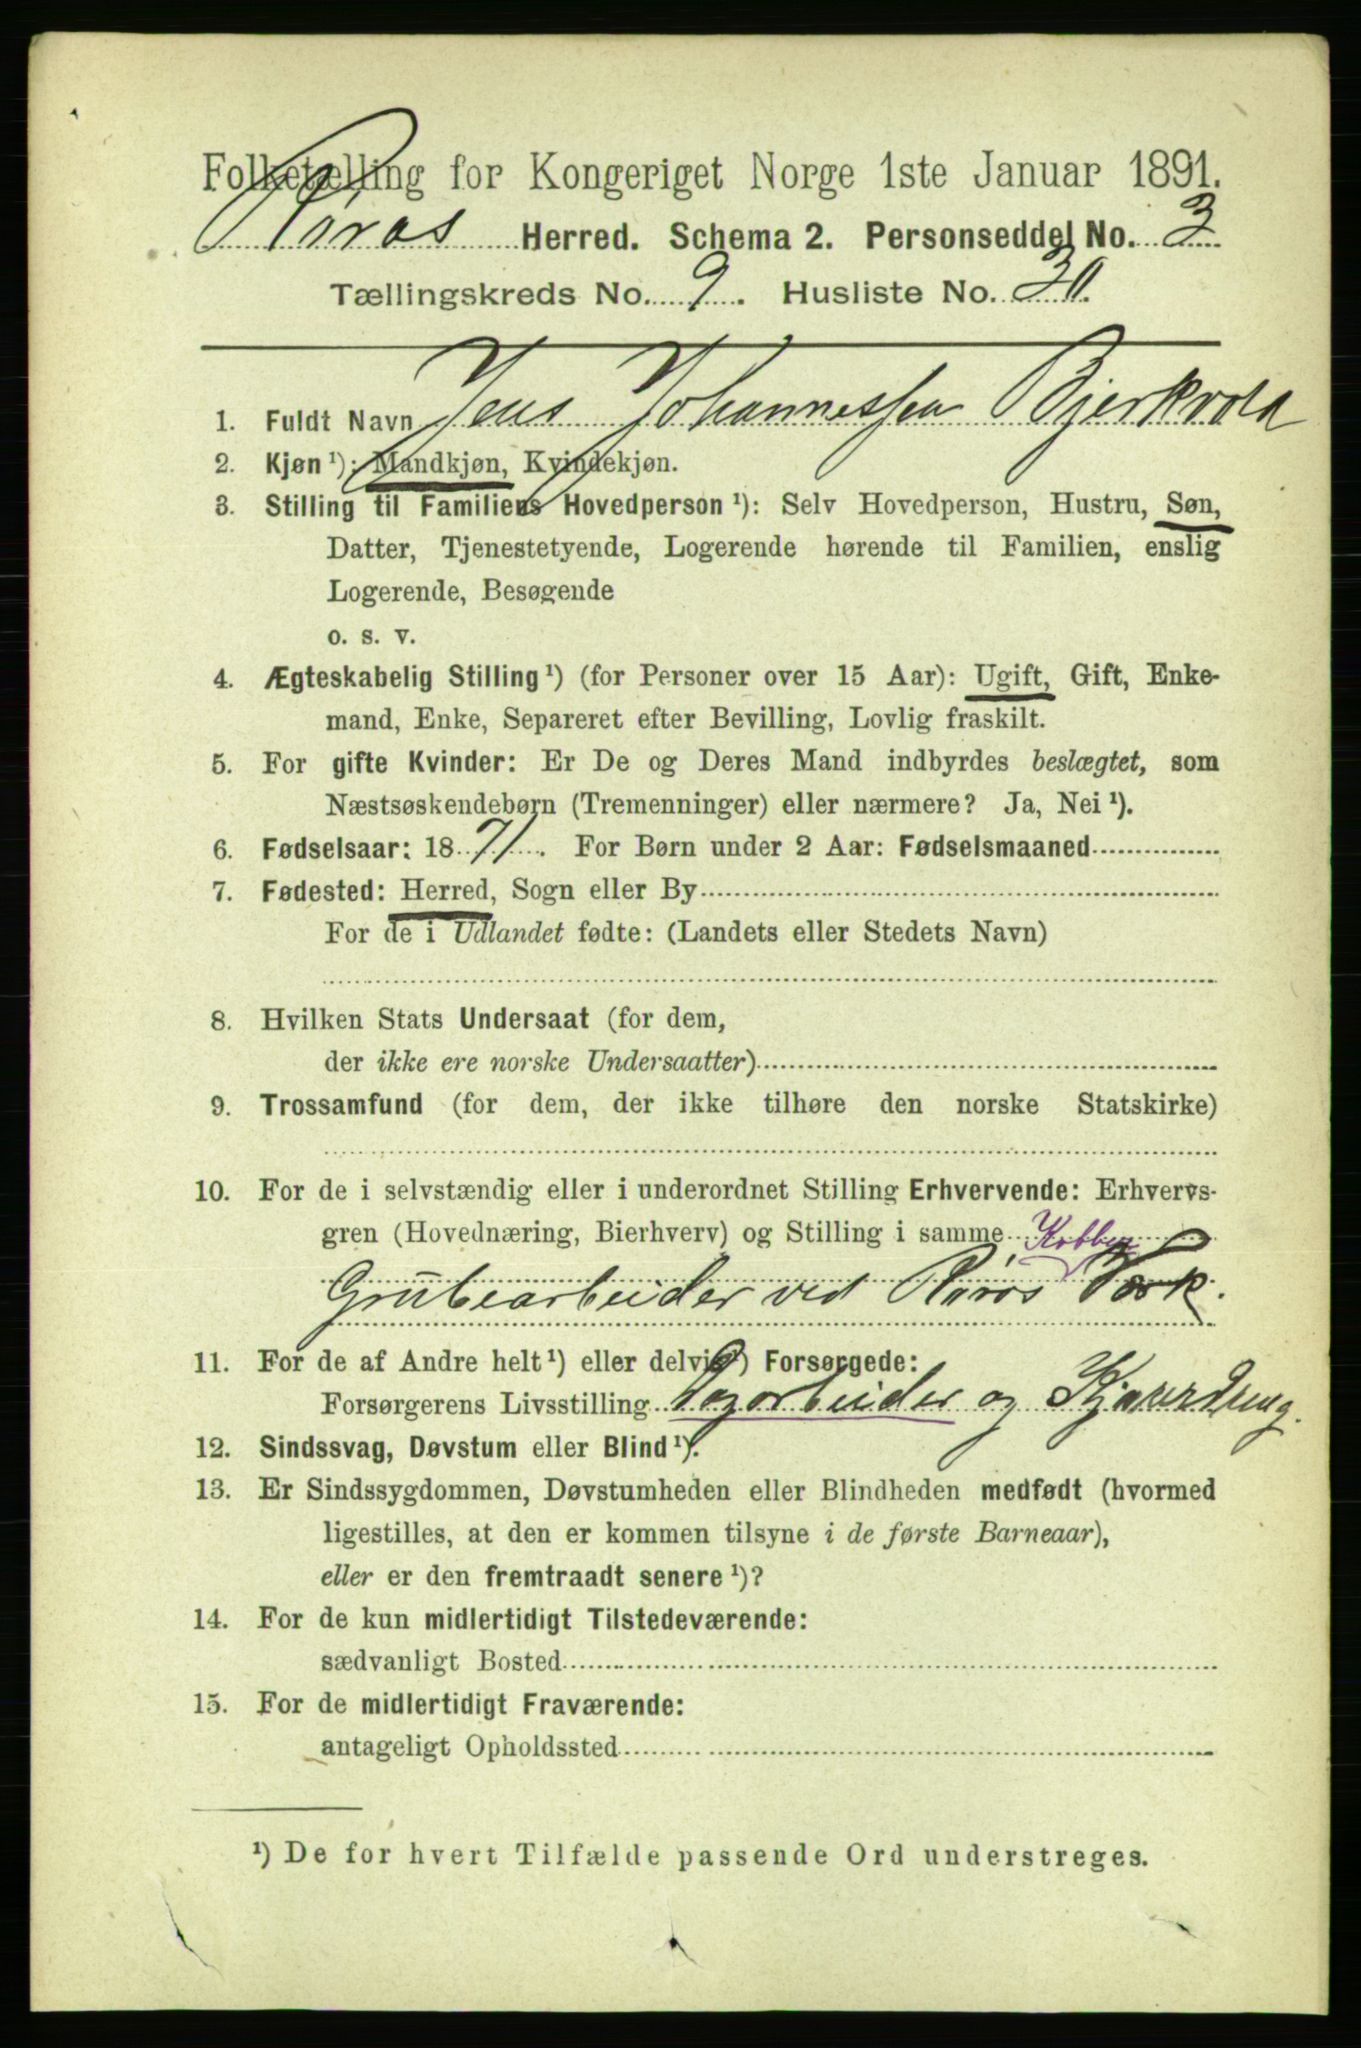 Folketælling for Kongeriget Norge 1ste Januar 1891.
Røros Herred. Schema 2. Personseddel No. 3
Tællingskreds No. 9. Husliste No. 30.
1. Fuldt Navn Jens Johannessen Bjerkvold
2. Kjøn ¹): Mandkjøn, Kvindekjøn.
3. Stilling til Familiens Hovedperson ¹): Selv Hovedperson, Hustru, Søn,
Datter, Tjenestetyende, Logerende hørende til Familien, enslig
Logerende, Besøgende
o. s. v.
4. Ægteskabelig Stilling ¹) (for Personer over 15 Aar): Ugift, Gift, Enke-
mand, Enke, Separeret efter Bevilling, Lovlig fraskilt.
5. For gifte Kvinder: Er De og Deres Mand indbyrdes beslægtet, som
Næstsøskendebørn (Tremenninger) eller nærmere? Ja, Nei ¹).
6. Fødselsaar: 1871. For Børn under 2 Aar: Fødselsmaaned
7. Fødested: Herred, Sogn eller By
For de i Udlandet fødte: (Landets eller Stedets Navn)
8. Hvilken Stats Undersaat (for dem,
der ikke ere norske Undersaatter)
9. Trossamfund (for dem, der ikke tilhøre den norske Statskirke)
10. For de i selvstændig eller i underordnet Stilling Erhvervende: Erhvervs-
gren (Hovednæring, Bierhverv) og Stilling i samme Kobber
Grubearbeider ved Røros Værk.
11. For de af Andre helt ¹) eller delvis ¹) Forsørgede:
Forsørgerens Livsstilling og
12. Sindssvag, Døvstum eller Blind ¹).
13. Er Sindssygdommen, Døvstumheden eller Blindheden medfødt (hvormed
ligestilles, at den er kommen tilsyne i de første Barneaar),
eller er den fremtraadt senere ¹)?
14. For de kun midlertidigt Tilstedeværende:
sædvanligt Bosted
15. For de midlertidigt Fraværende:
antageligt Opholdssted
¹) De for hvert Tilfælde passende Ord understreges.